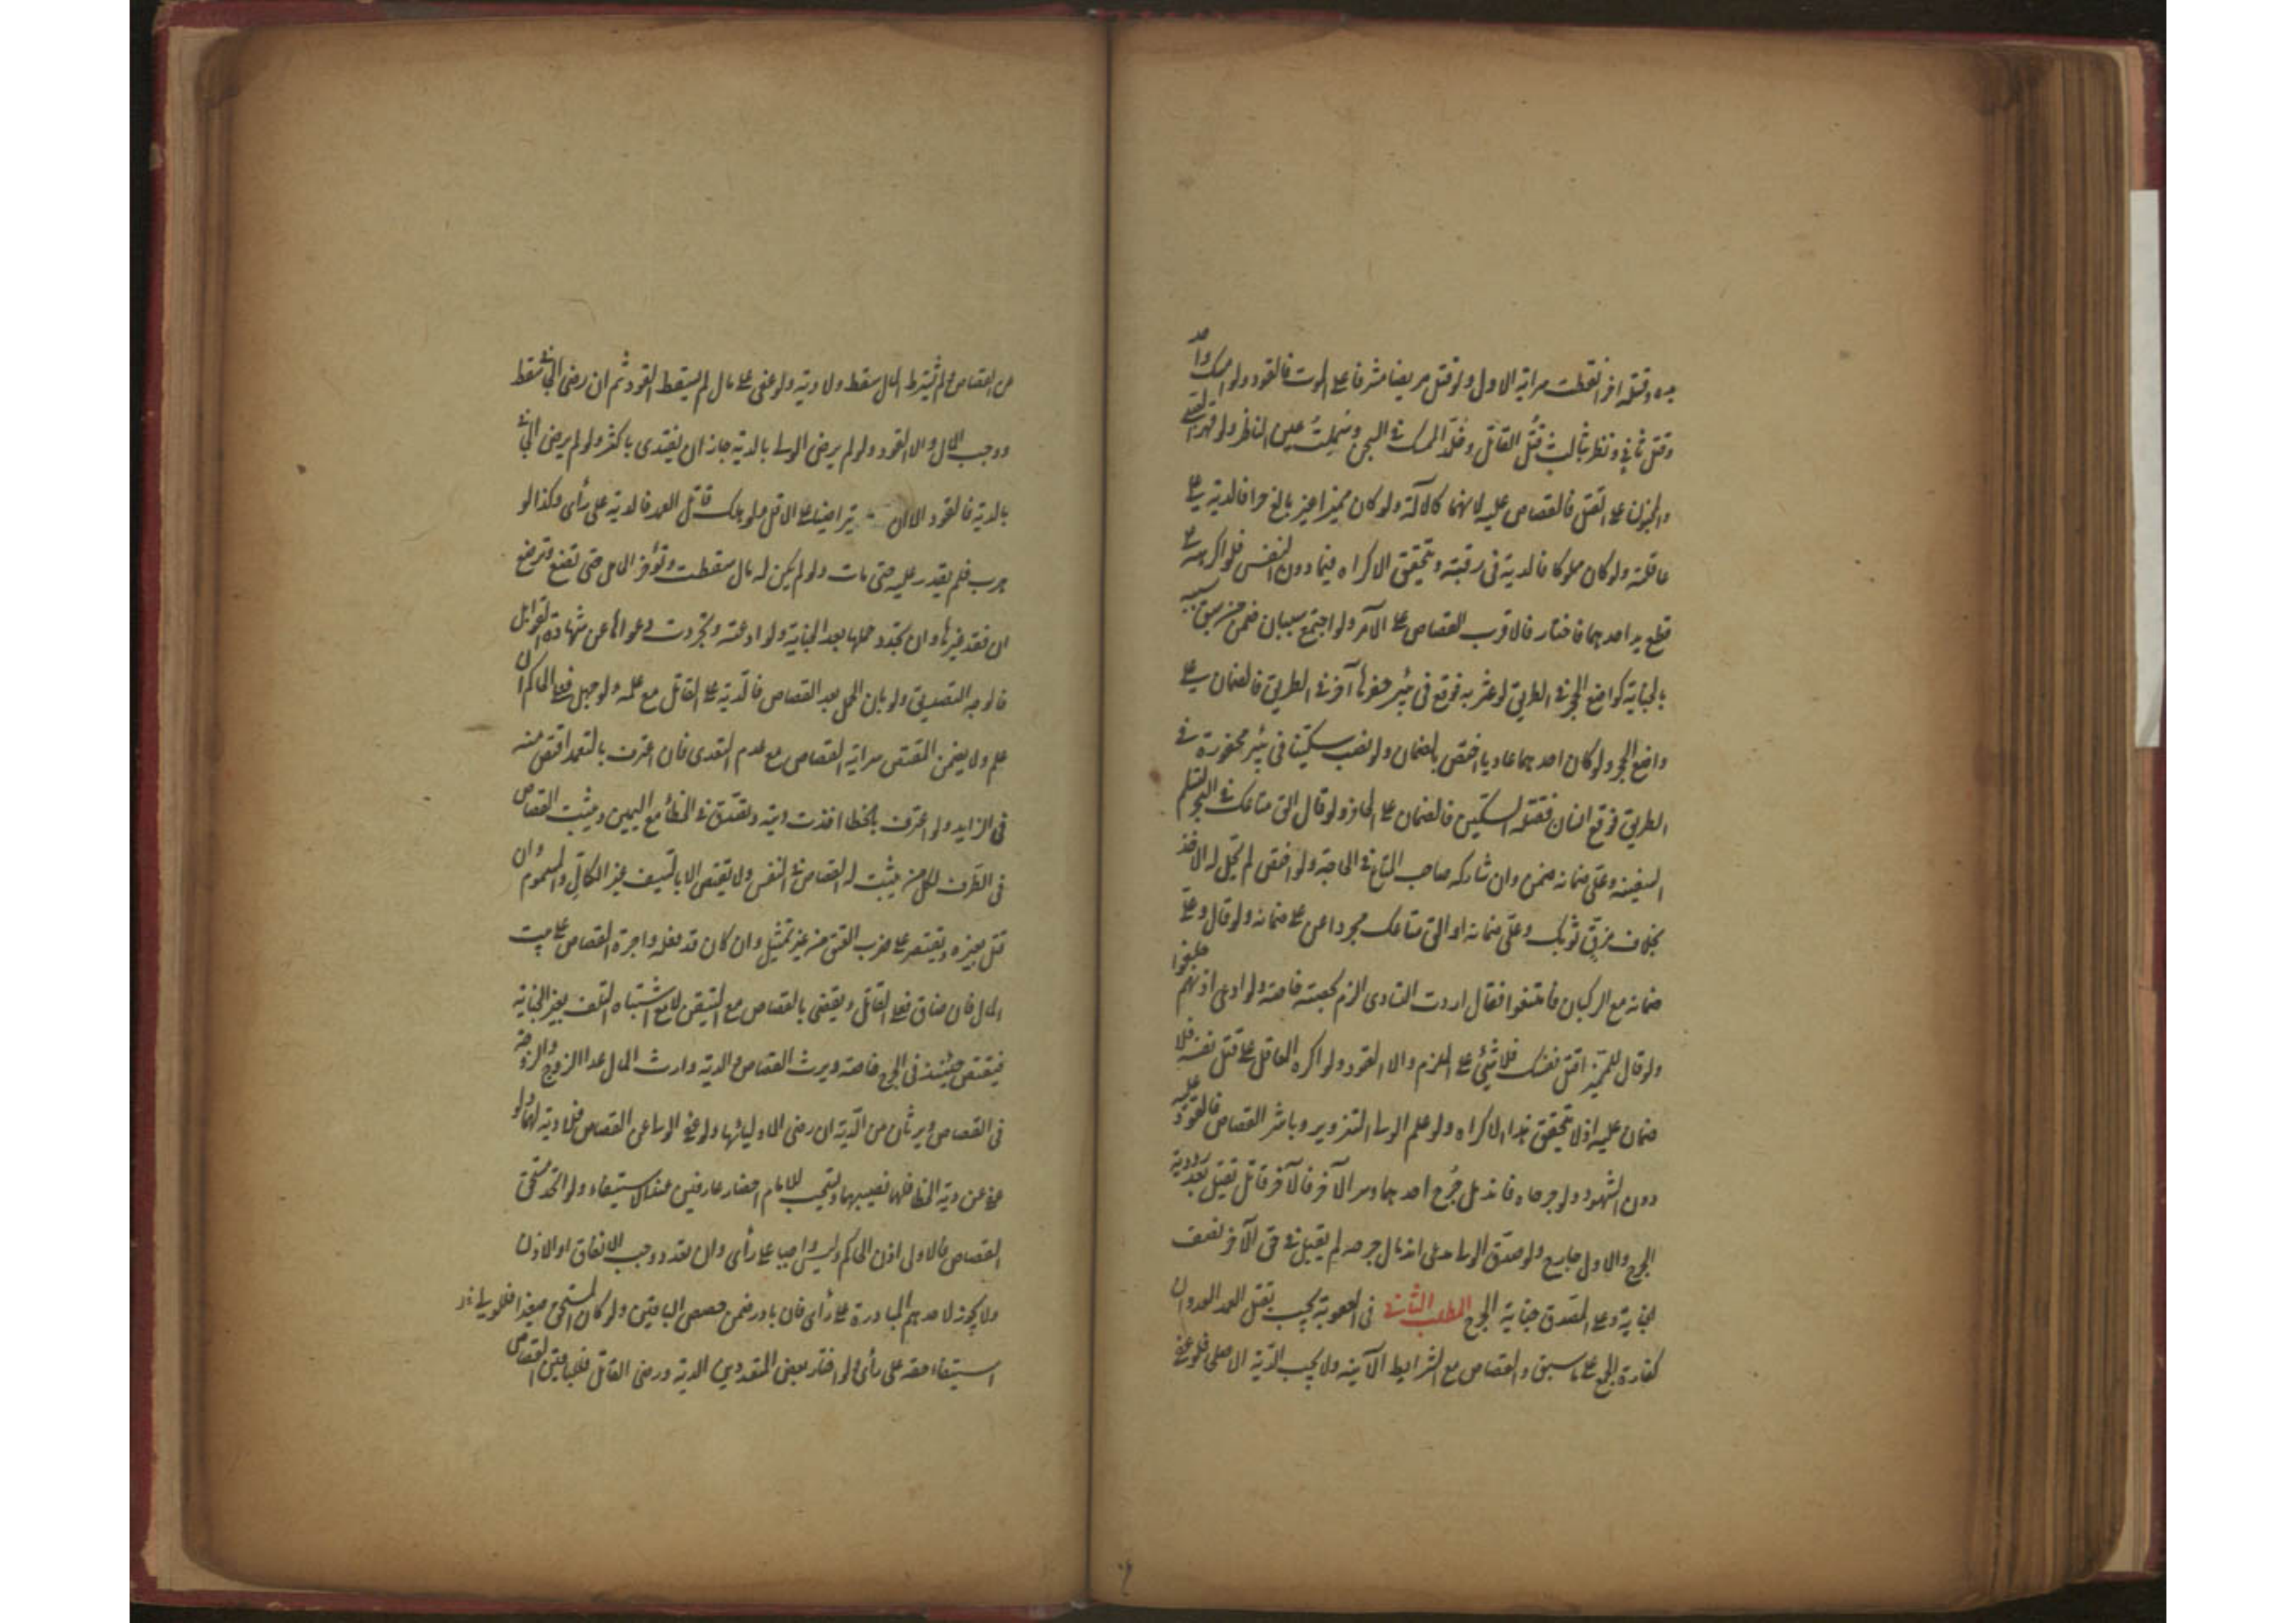 يده وقتله آخر انقطعت سراية الاول ولو قتل مريضا مشرفا على الموت فالقود ولو امسك واحد
وقتل ثاني ونظر ثالث قُتل القاتل وخُلّد الممسك في السجن وسُملت عين الناظر ولو قهر الصبي
والمجنون على القتل فالقصاص عليه لانهما كالآلة ولو كان مميزا غير بالغ حرا فالدية على
عاقلته ولو كان مملوكا فالدية في رقبته ويتحقق الاكراه فيما دون النفس فلو اكرهه على
قطع يد احدهما فاختار فالاقرب القصاص على الآمر ولو اجتمع سببان ضمن من سبق سببه
بالجناية كواضع الحجر في الطريق لو عثر به فوقع في بئر حفرها آخر في الطريق فالضمان على
واضع الحجر ولو كان احدهما عاديا اختص بالضمان ولو نصب سكينا في بئر محفورة في
الطريق فوقع انسان فقتله السكين فالضمان على الحافر ولو قال الق متاعك في البحر لتسلم
السفينة وعلىّ ضمانه ضمن وان شاركه صاحب المتاع في الحاجة ولو اختص لم يحل له الاخذ
بخلاف مزّق ثوبك وعلىّ ضمانه او الق متاعك مجردا عن على ضمانه ولو قال وعلىّ
ضمانه مع الركبان فامتنعوا فقال اردت التساوى الزم بحصته خاصة ولو ادعى اذنهم حلفوا
ولو قال للمميز اقتل نفسك فلا شئ على الملزم والا القود ولو اكره العاقل على قتل نفسه فلا
ضمان عليه اذ لا يتحقق هذا الاكراه ولو علم الولى التزوير وباشر القصاص فالقود عليه
دون الشهود ولو جرحاه فاندمل جُرح احدهما وسر الآخر فالآخر قاتل يقتل بعد رد دية
الجرح والاول جارح ولو صدّق الولى مدعى اندمال جرحه لم يقبل في حق الآخر نصف
الجناية وعلى المصدق جناية الجرح المطلب الثاني في العقوبة يجب بقتل العمد العدوان
كفارة الجمع على ما سبق والقصاص مع الشرايط الآتية ولا يجب الدّية الا صلحا فلو عفى
عن القصاص ولم يشترط المال سقط ولا دية ولو عفى على مال لم يسقط القود ثم ان رضى الجاني سقط
ووجب المال والا القود ولو لم يرض الولى بالدية جاز ان يفتدى باكثر ولو لم يرض الجاني
بالدية فالقود الا ان يتراضيا على الاقل ولو هلك قاتل العمد فالدية على رأى وكذا لو
هرب فلم يقدر عليه حتى مات ولو لم يكن له مال سقطت وتؤخر الحامل حتى تضع وترضع
ان فقد غيرها وان تجدد حملها بعد الجناية ولو ادعته وتجردت دعواها عن شهادة القوابل
فالوجه التصديق ولو بان الحمل بعد القصاص فالدّية على القاتل مع علمه ولو جهل فعلى الحاكم ان
علم ولا يضمن المقتص سراية القصاص مع عدم التعدى فان اعترف بالتعمد اقتص منه
في الزايد ولو اعترف بالخطا اخذت ديته ويصدّق في الخطأ مع اليمين ويثبت القصاص
في الطرف لكل من يثبت له القصاص في النفس ولا يقتص الا بالسيف غير الكالّ والمسموم وان
قتل بغيره ويقتصر على ضرب العنق من غير تمثيل وان كان قد فعله واجرة القصاص على بيت
المال فان ضاق فعلى القاتل ويقضى بالقصاص مع التيقن لا مع اشتباه التلف بغير الجناية
فيقتص حينئذ في الجرح خاصة ويرث القصاص والدية وارث المال عدا الزوج والزوجة
في القصاص ويرثان من الدّية ان رضى الاولياء بها ولو عفى الولى عن القصاص فلا دية لهما ولو
عفى عن دية الخطا فلهما نصيبهما ويستحب للامام احضار عارفين عند الاستيفاء ولو اتحد مستحق
القصاص فالاولى اذن الحاكم وليس واجبا على رأى وان تعدد وجب الاتفاق او الاذن
ولا يجوز لاحدهم المبادرة على رأى فان بادر ضمن حصص الباقين ولو كان المستحق صغيرا فللولى
استيفاء حقه على رأى ولو اختار بعض المتعددين الدية ورضى القاتل فللباقين القصاص